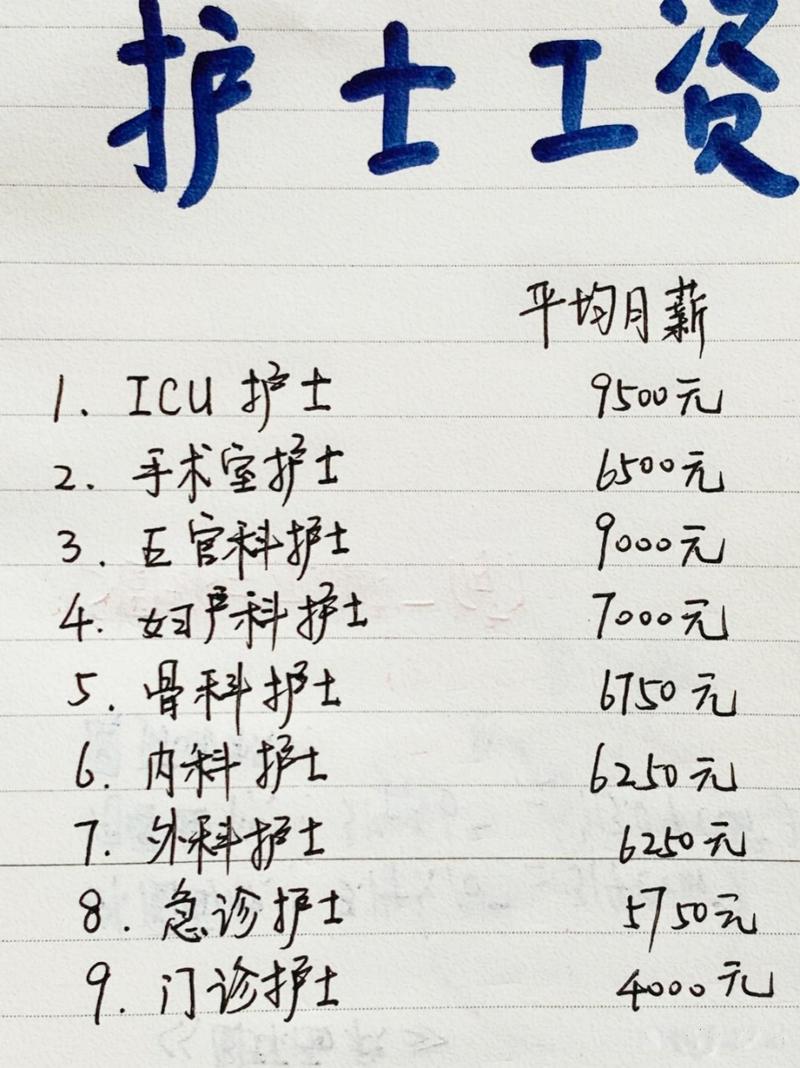 护士工资
平均月薪
1. ICU 护士 9500元
2. 手术室护士 6500元
3. 五官科护士 9000元
4. 妇产科护士 7000元
5. 骨科护士 6750元
6. 内科护士 6250元
7. 外科护士 6250元
8. 急诊护士 5750元
9. 门诊护士 4000元